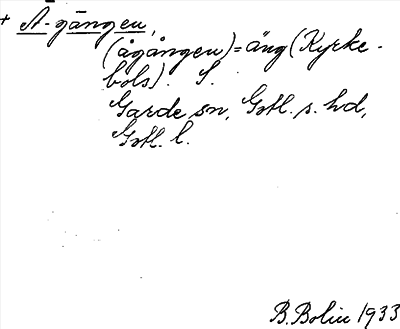 + Å-gången,
(ågången) = äng (Kyrke-
bols). S.
Garde sn, Gotl. s. hd,
Gotl. l.
B. Bolin 1933